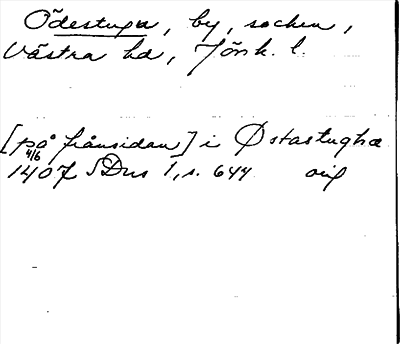 Ödestuga, by, socken,
Västra hd, Jönk. l.
[på frånsidan] i Østastugha
4/6
1407 SDns 1, s. 644 orig